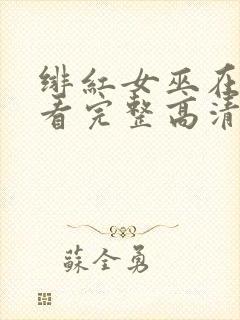 绯红女巫在
看完整高清
蘇全勇